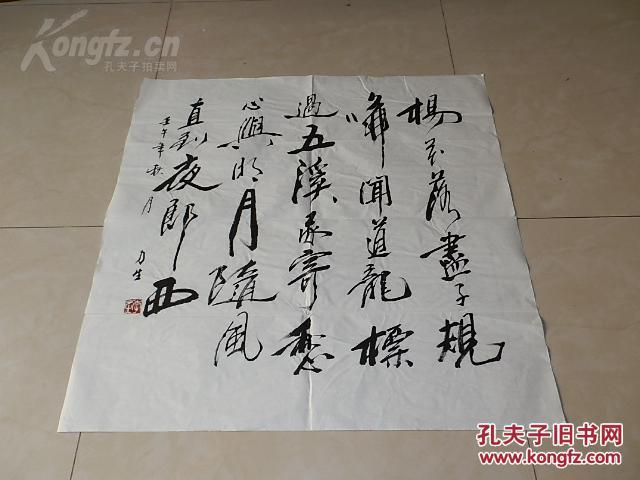 Kongfz.cn
孔夫子拍卖网
楊花落盡子規
啼聞道龍標
過五溪我寄愁
心與明月隨風
直到夜郎西
壬午年秋月
力生
孔夫子旧书网
www.kongfz.com